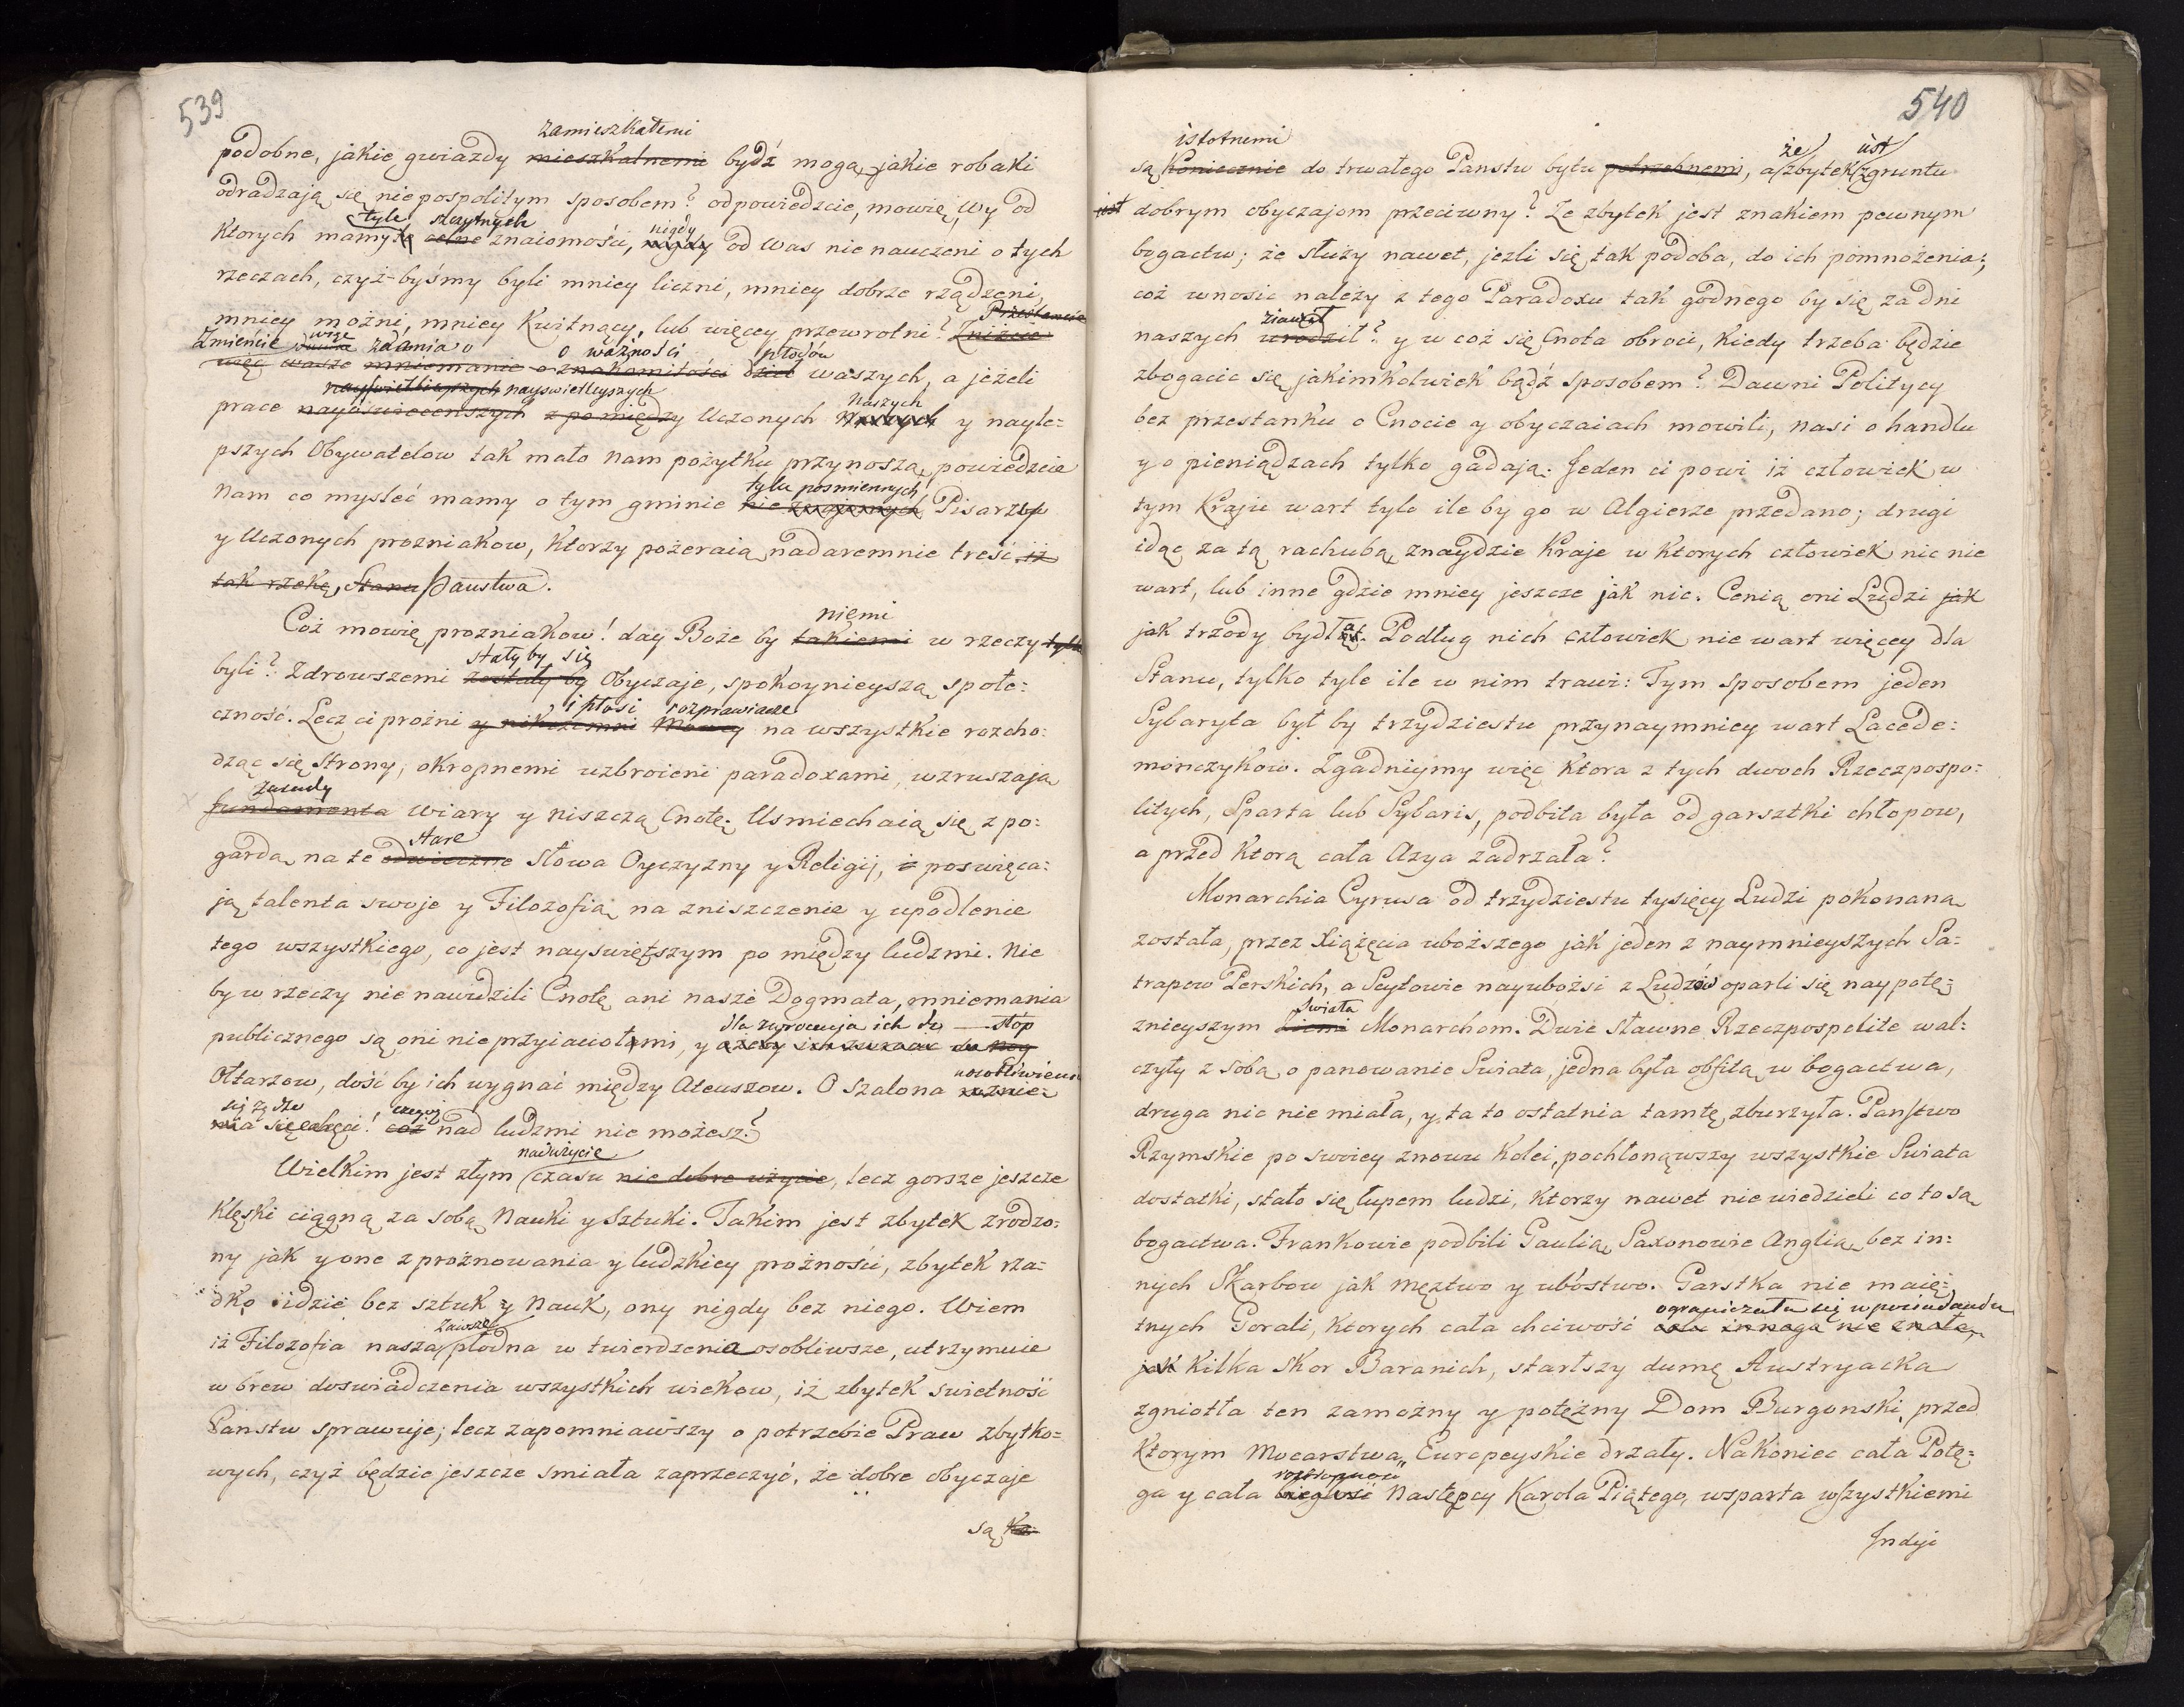 539
zamieszkałemi
podobne, jakie gwiazdy mieszkalnemi bydź mogą, jakie robaki
odradzają się niepospolitym sposobem? odpowiedzcie, mowię, Wy od
tyle szczytnych nigdy
Ktorych mamy te celne znaiomości, nigdy od Was nie nauczeni o tych
rzeczach, czyż-byśmy byli mniey liczni, mniey dobrze rządzeni,
Przestancie
mniey możni, mniey Kwitnący, lub więcey przewrotni? Zniżcie
Zmieńcie wrze zdania o o ważności płodów
więc wasze mniemanie o znakomitości dzieł waszych, a jeżeli
nayświetlieyszych nayswietleyszych Naszych
prace nayoświecenszych z pomiędzy Uczonych Waszych y nayle=
pszych Obywatelow tak mało nam pożytku przynoszą, powiedzcie
tylu posmiennych
Nam co mysleć mamy o tym gminie nie znajomych Pisarzow
y Uczonych prozniakow, Ktorzy pożeraią nadaremnie treść iż
tak rzekę, Stanu Panstwa.
niemi
Coż mowię prozniakow! day Boże by takiemi w rzeczy tylko
stały by się
byli? Zdrowszemi zostały by Obyczaje, spokoynieyszą społe:
i płosi rozprawiacze
czność. Lecz ci prożni y nikczemni Mowcy na wszystkie rozcho:
dząc się Strony, okropnemi uzbroieni paradoxami, wzruszają
zasady
fundamenta Wiary y niszczą Cnotę. Usmiechaią się z po:
stare
gardą na te odwieczne Słowa Oyczyzny y Religij, i poswięca:
ją talenta swoje y Filozofią na zniszczenie y upodlenie
tego wszystkiego, co jest nayswiętszym po między ludzmi. Nie
by w rzeczy nie nawidzili Cnotę ani nasze Dogmata, mniemania
dla zwrocenia ich do stóp
publicznego są oni nieprzyiaciołmi, y ażeby ich zwrocić do nog
Ołtarzow, dość by ich wygnać między Ateuszow. O Szalona rożnie=
się żądzo czegoż
nia się chęci! coż nad ludzmi nie możesz?
nadużycie
Wielkim jest złym czasu nie dobre użycie, lecz gorsze jeszcze
Klęski ciągną za sobą Nauki y Sztuki. Takim jest zbytek zrodzo:
ny jak y one z prożnowania y ludzkiey prożności, zbytek rza=
dko idzie bez sztuk y Nauk, ony nigdy bez niego. Wiem
zawsze
iż Filozofia nasza płodna w twierdzenia osobliwsze, utrzymuie
w brew doswiadczenia wszystkich wiekow, iż zbytek swietność
Panstw sprawuje; lecz zapomniawszy o potrzebie Praw zbytko=
wych, czyż będzie jeszcze smiała zaprzeczyć, że dobre obyczaje
są Ko
540
istotnemi że iest
są Koniecznie do trwałego Panstw bytu potrzebnemi, a zbytek z gruntu
iest dobrym obyczajom przeciwny? Ze zbytek jest znakiem pewnym
bogactw; że służy nawet, jezli się tak podoba, do ich pomnożenia;
coż wnosic należy z tego Paradoxu tak godnego by się za dni
ziawił
naszych urodził? y w coż się Cnota obroci, Kiedy trzeba będzie
zbogacic się jakimkolwiek bądź sposobem? Dawni Politycy
bez przestanku o Cnocie y obyczaiach mowili, nasi o handlu
y o pieniądzach tylko gadają. Jeden ci powi iż człowiek w
tym Kraju wart tyle ile by go w Algierze przedano; drugi
idąc za tą rachubą znaydzie Kraje w Ktorych człowiek nic nie
wart, lub inne gdzie mniey jeszcze jak nic. Cenią oni Ludzi jak
jak trzody bydląt. Podług nich człowiek nie wart więcey dla
Stanu, tylko tyle ile w nim trawi: Tym sposobem jeden
Sybaryta był by trzydziestu przynaymniey wart Lacede:
mończykow. Zgadniymy więc Ktora z tych dwoch Rzeczpospo:
litych, Sparta lub Sybaris, podbita była od garsztki chłopow,
a przed Ktorą cała Azya zadrzała?
Monarchia Cyrusa od trzydziestu tysięcy Ludzi pokonana
została, przez Xiążęcia uboższego jak jeden z naymnieyszych Sa=
trapow Perskich, a Scytowie nayubożsi z Ludzi oparli się naypotę=
Swiata
znieyszym Ziemi Monarchom. Dwie sławne Rzeczpospolite wal:
czyły z sobą o panowanie Swiata, jedna była obfitą w bogactwa,
druga nic nie miała, y ta to ostatnia tamtę zburzyła. Panstwo
Rzymskie po swoiey znowu Kolei, pochłonąwszy wszystkie Swiata
dostatki, stało się łupem ludzi, Ktorzy nawet nie wiedzieli co to są
bogactwa. Frankowie podbili Gaulią, Saxonowie Anglią bez in:
nych Skarbow jak męztwo y ubóstwo. Garstka nie maię:
ograniczała się w posiadaniu
tnych Gorali, Ktorych cała chciwość celu innego nie znała,
jak Kilka Skor Baranich, startszy dumę Austryacką
zgniotła ten zamożny y potężny Dom Burgonski, przed
Ktorym Mocarstwa Europeyskie drzały. Nakoniec cała Potę=
roztropność
ga y cała biegłość Następcy Karola Piątego, wsparta wszystkiemi
Indyi